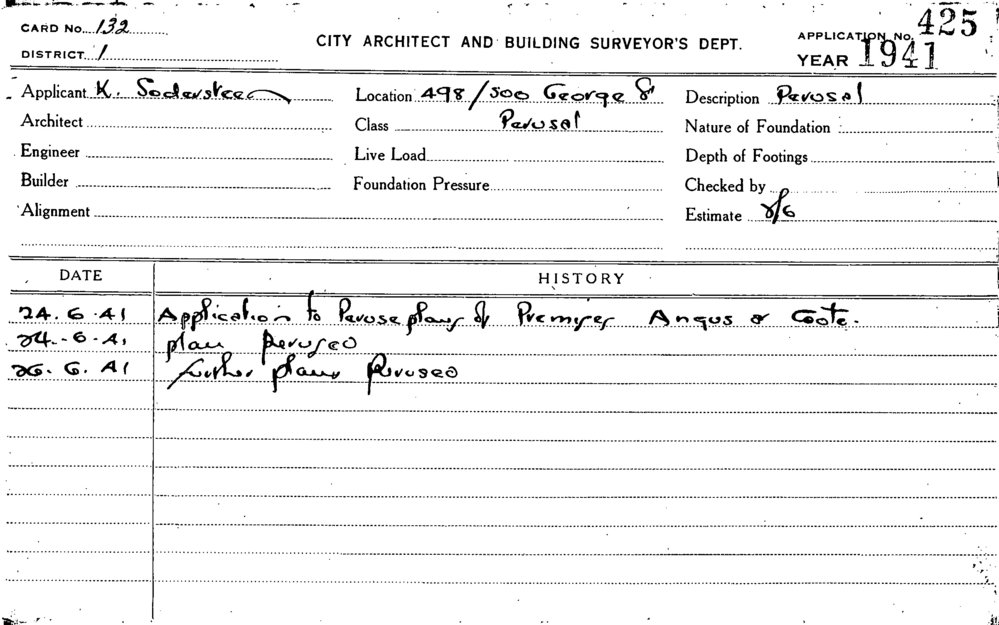 CARD No. 132
DISTRICT 1
CITY ARCHITECT AND BUILDING SURVEYOR'S DEPT.
APPLICATION No. 425
YEAR 1941
Applicant K. Sodersteen Location 498/500 George St Description Perusal
Architect Class Perusal Nature of Foundation
Engineer Live Load Depth of Footings
Builder Foundation Pressure Checked by
Alignment Estimate 2/6
DATE HISTORY
24.6.41 Application to Peruse plans of Premises Angus & Coote.
24.6.41 plan Perused
26.6.41 further plans Perused